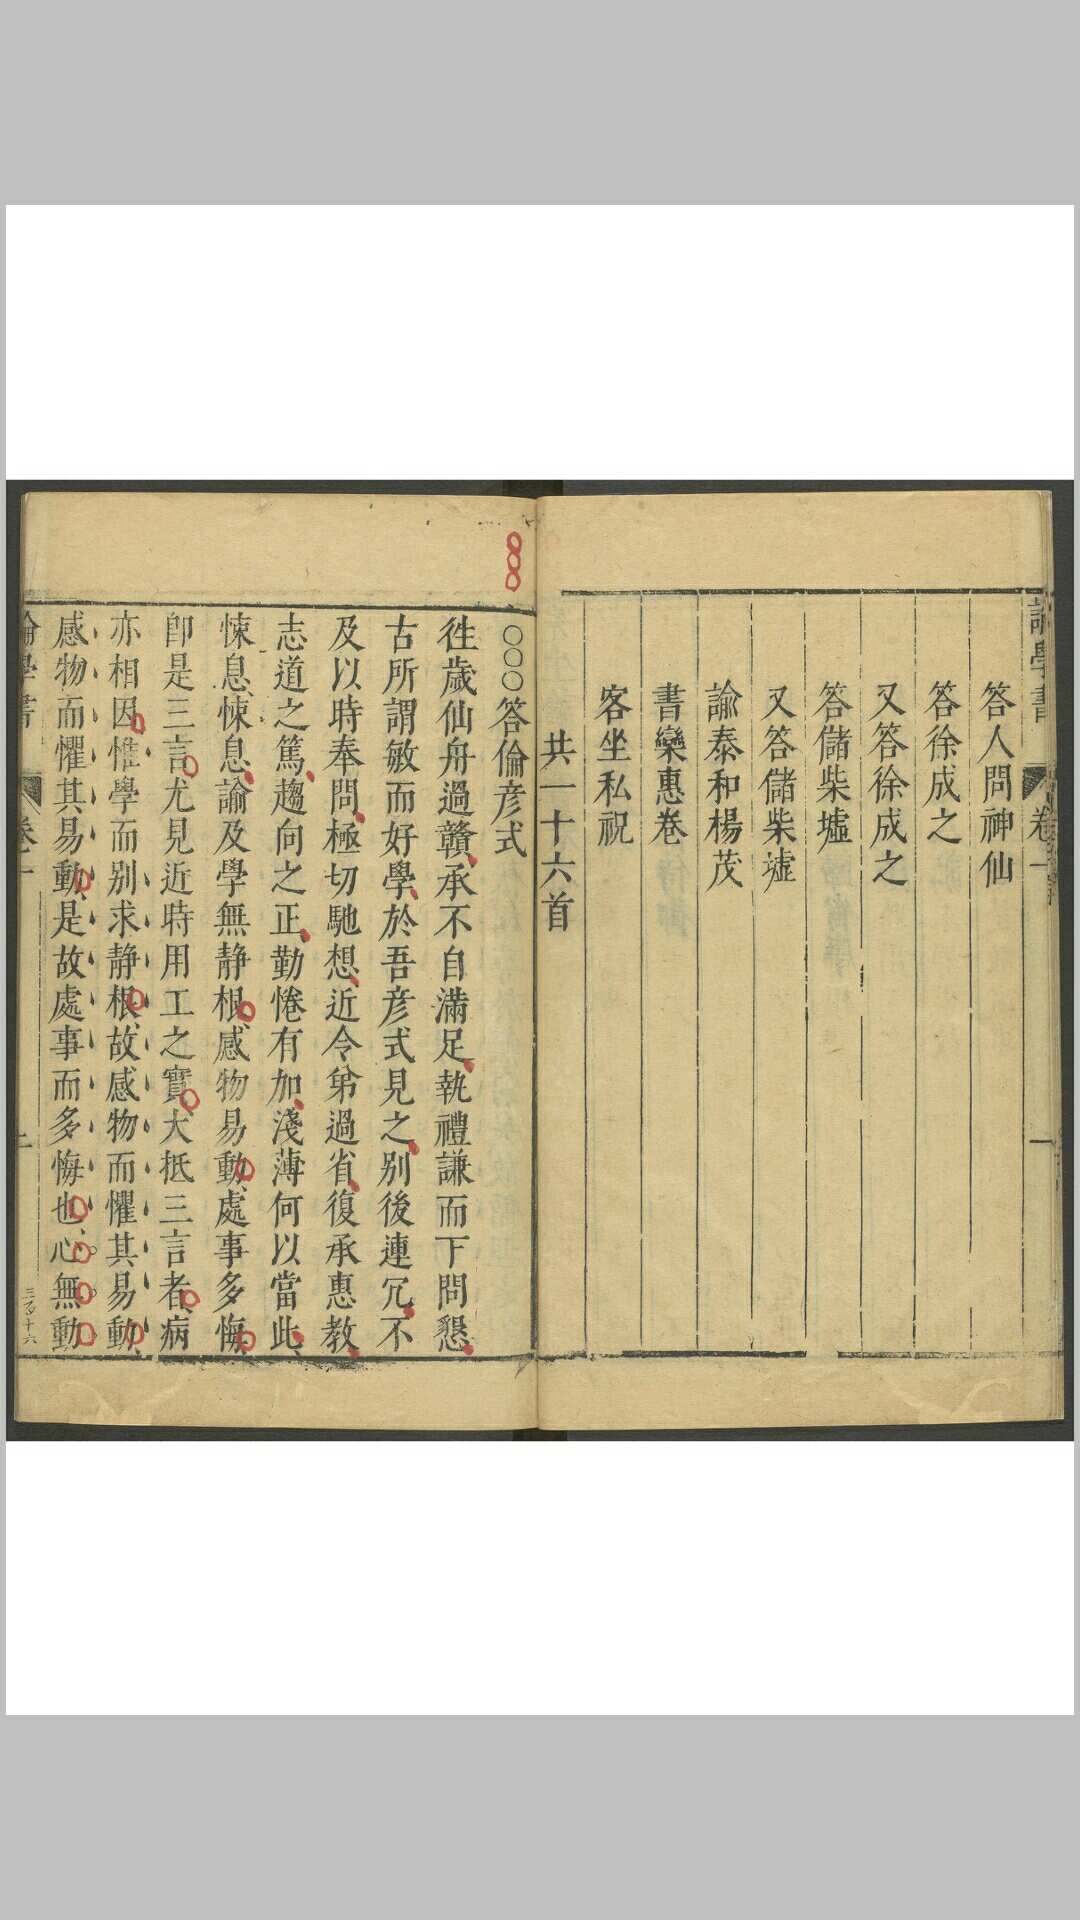 論學書 卷一 一
答人問神仙
答徐成之
又答徐成之
答儲柴墟
又答儲柴墟
諭泰和楊茂
書欒惠卷
客坐私祝
共一十六首
○○○答倫彥式
徃歲仙舟過贛承不自滿足執禮謙而下問懇
古所謂敏而好學於吾彥式見之別後連冗不
及以時奉問極切馳想近令弟過省復承惠教
志道之篤趨向之正勤惓有加淺薄何以當此
悚息悚息諭及學無静根感物易動處事多悔
卽是三言尤見近時用工之實大抵三言者病
亦相因惟學而别求静根故感物而懼其易動
感物而懼其易動是故處事而多悔也心無動
論學書 卷一 二 三百十六